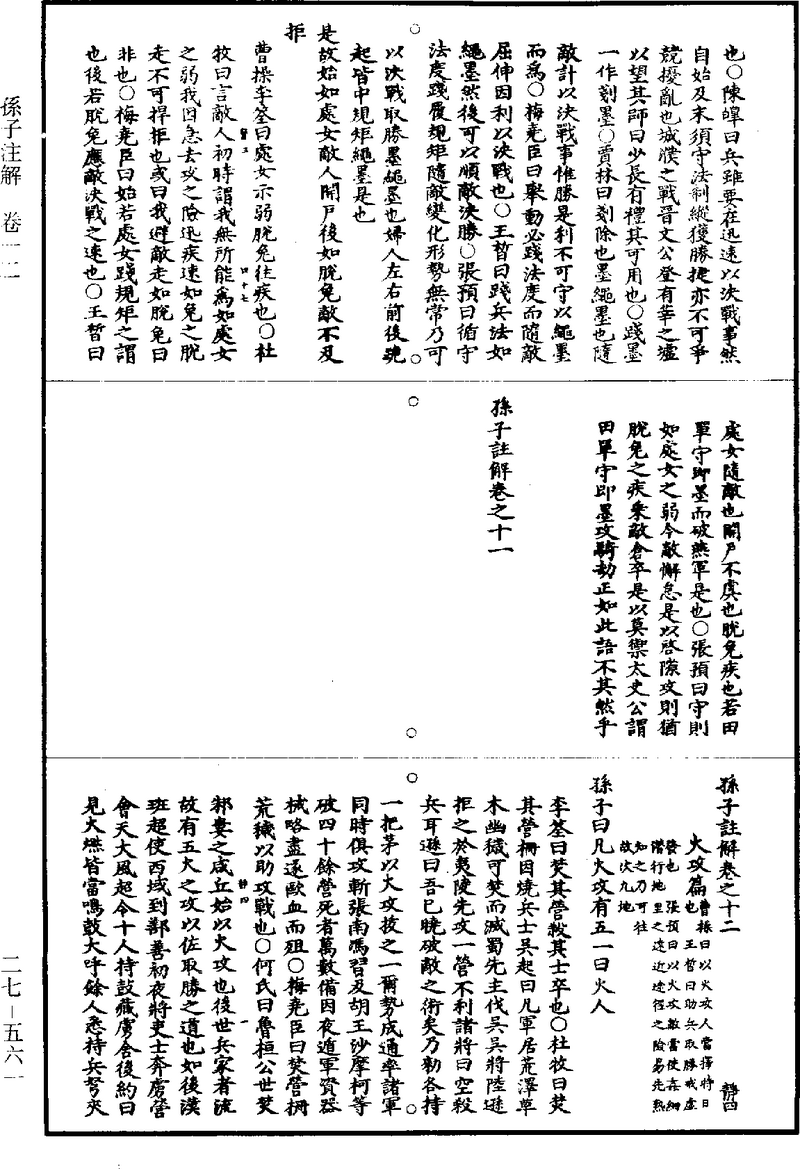 也○陳皥曰兵雖要在迅速以決戰事然
自始及末須守法制縱獲勝捷亦不可爭
競擾亂也城濮之戰晉文公登有莘之墟
以望其師曰少長有禮其可用也○踐墨
一作剗墨○賈林曰剗除也墨繩墨也隨
敵計以決戰事惟勝是利不可守以繩墨
而為○梅堯臣曰舉動必踐法度而隨敵
屈伸因利以決戰也○王晳曰踐兵法如
繩墨然後可以順敵決勝○張預曰循守
法度踐履規矩隨敵變化形勢無常乃可
以決戰取勝墨繩墨也婦人左右前後跪
起皆中規矩繩墨是也
是故始如處女敵人開戶後如脫兔敵不及
拒
曹操李筌曰處女示弱脫兔往疾也○杜
牧曰言敵人初時謂我無所能為如處女
之弱我因急去攻之險迅疾速如兔之脫
走不可捍拒也或曰我避敵走如脫兔曰
非也○梅堯臣曰始若處女踐規矩之謂
也後若脫兔應敵決戰之速也○王晳曰
處女隨敵也開戶不虞也脫兔疾也若田
單守即墨而破燕軍是也○張預曰守則
如處女之弱令敵懈怠是以啓隙攻則猶
脫兔之疾乘敵倉卒是以莫禦太史公謂
田單守即墨攻騎劫正如此語不其然乎
孫子註解卷之十一
孫子註解卷之十二
靜四
火攻篇
曹操曰以火攻人當擇時日
也 王晳曰助兵取勝戒虛
發也 張預曰以火攻敵當使姦細
潛行地里之遠近途徑之險易先熟
知之乃可往
故次九地
孫子曰凡火攻有五一曰火人
李筌曰焚其營殺其士卒也○杜牧曰焚
其營柵因燒兵士吳起曰凡軍居荒澤草
木幽穢可焚而滅蜀先主伐吳吳將陸遜
拒之於夷陵先攻一營不利諸將曰空殺
兵耳遜曰吾已曉破敵之術矣乃勑各持
一把茅以火攻拔之一爾勢成通率諸軍
同時俱攻斬張南馮習及胡王沙摩柯等
破四十餘營死者萬數備因夜遁軍資器
械略盡遂歐血而殂○梅堯臣曰焚營柵
荒穢以助攻戰也○何氏曰魯桓公世焚
邾婁之咸丘始以火攻也後世兵家者流
故有五火之攻以佐取勝之道也如後漢
班超使西域到鄯善初夜將吏士奔虜營
會天大風超令十人持鼓藏虜舍後約曰
見火燃皆當鳴鼓大呼餘人悉持兵弩夾
孫子注解 卷一二
二七－五六一
四十七
靜四
一